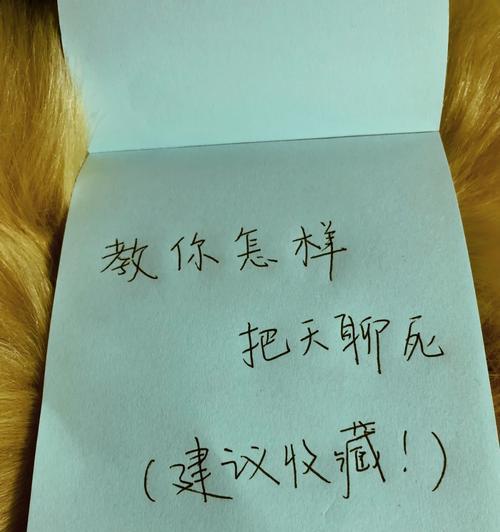 教你怎样
把天聊死
(建议收藏!)